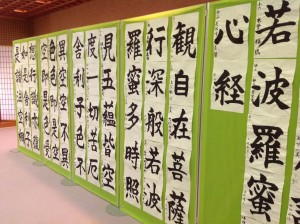 若波羅蜜
心経
観自在菩薩
行深般若波
羅蜜多時照
見五蘊皆空
度一切苦厄
舎利子色不
異空空不異
色色即是空
空即是色受
想行識亦復